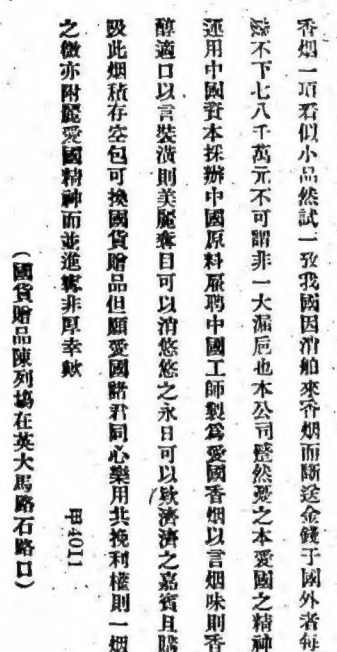 香烟一項看似小品然試一攷我國因消舶來香烟而斷送金錢于國外者每
歲不下七八千萬元不可謂非一大漏卮也本公司 然憂之本愛國之精神
運用中國資本採辦中國原料嚴聘中國工師製爲愛國香烟以言烟味則香
醇適口以言裝潢則美麗奪目可以消悠悠之永日可以欵濟濟之嘉賓且
吸此烟積存空包可換國貨贈品但願愛國諸君同心樂用共挽利權則一烟
之微亦附麗愛國精神而並進 非厚幸歟
(國貨贈品陳列場在英大馬路石路口)